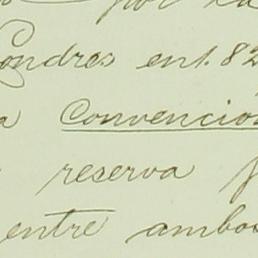 por la
Londres en 1.82
a Convencion
reserva y
entre ambos